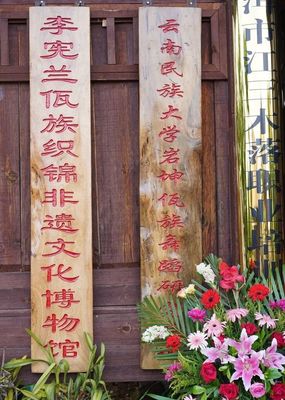 李宪兰佤族织锦非遗文化博物馆
云南民族大学岩坤佤族舞蹈研
市江三木落职业